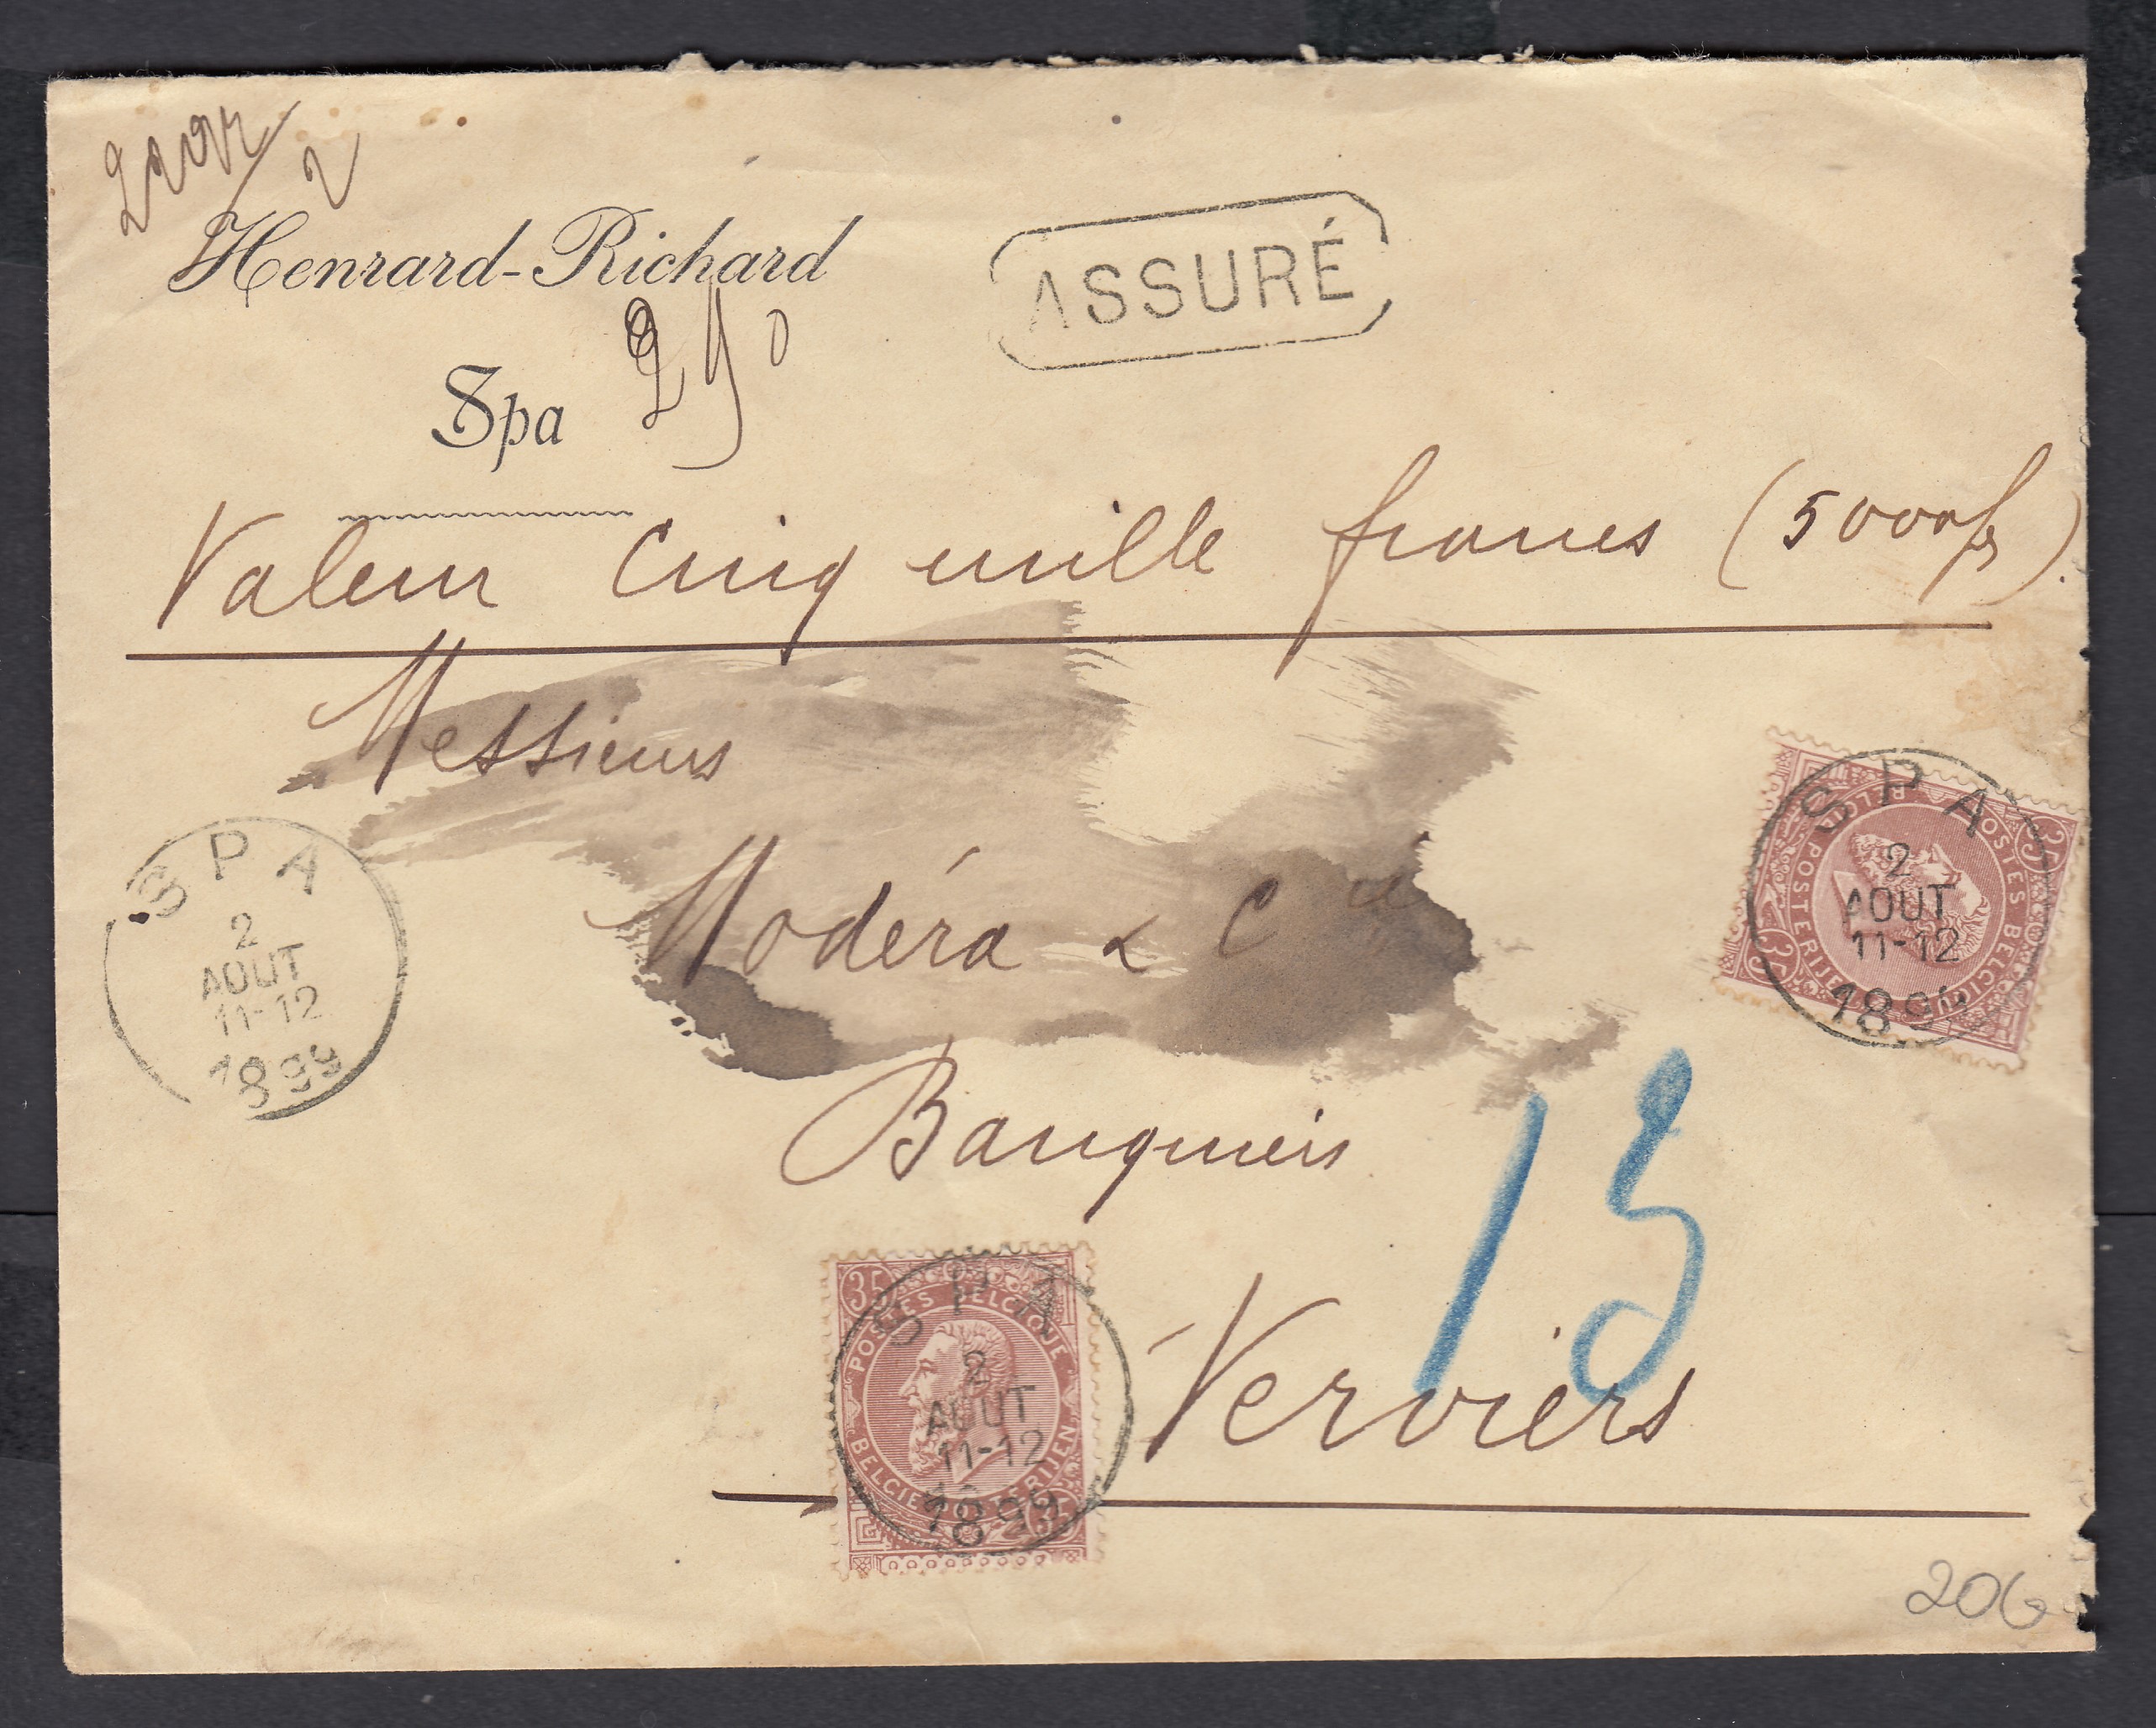 2
Henrard-Richard
ASSURÉ
Spa
Valeur Cinq mille francs (5000 frs).
Messieurs
Modéra & Cie
Banquiers
Verviers
SPA
2
AOUT
11-12
1899
SPA
2
AOUT
11-12
1899
35
POSTES BELGIQUE
BELGIE POSTERIJEN
35
15
35
POSTES BELGIQUE
BELGIE POSTERIJEN
35
SPA
2
AOUT
11-12
1899
206